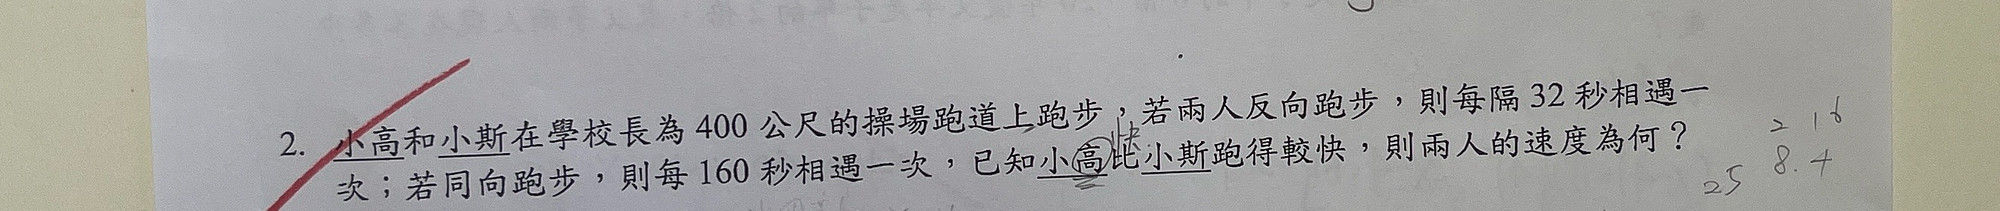 2. 小高和小斯在學校長為 400 公尺的操場跑道上跑步，若兩人反向跑步，則每隔 32 秒相遇一
快
次；若同向跑步，則每 160 秒相遇一次，已知小高比小斯跑得較快，則兩人的速度為何？
2 16
25 8.4